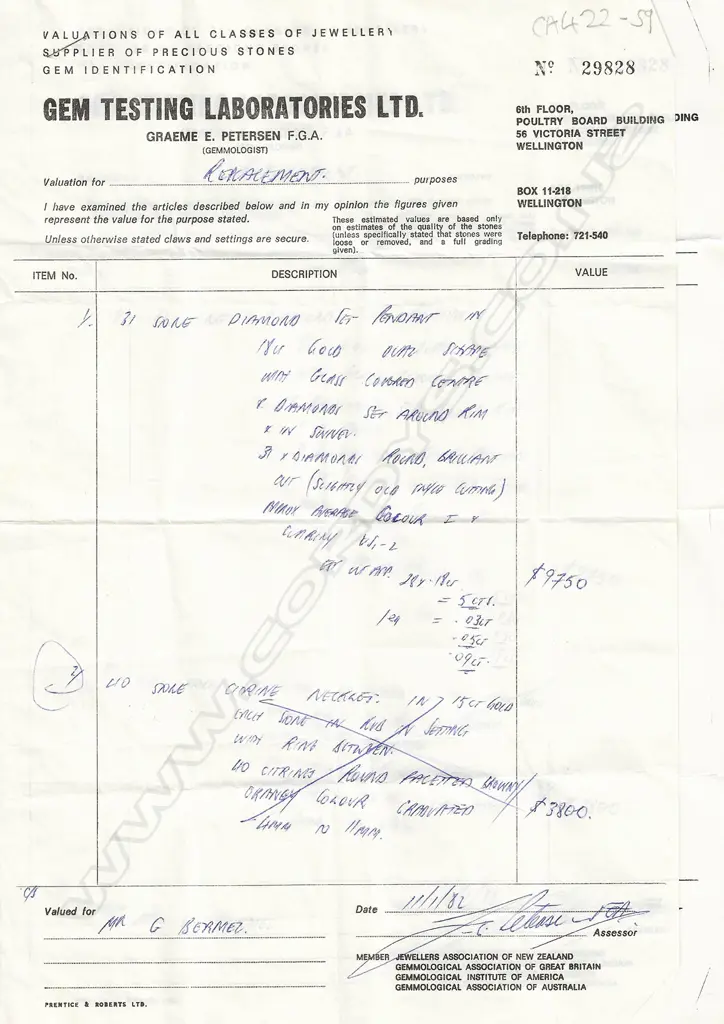 CA422-59
VALUATIONS OF ALL CLASSES OF JEWELLERY
SUPPLIER OF PRECIOUS STONES
GEM IDENTIFICATION
Nº 29828
GEM TESTING LABORATORIES LTD.
GRAEME E. PETERSEN F.G.A.
(GEMMOLOGIST)
6th FLOOR,
POULTRY BOARD BUILDING DING
56 VICTORIA STREET
WELLINGTON
Valuation for REPLACEMENT. purposes
BOX 11-218
WELLINGTON
I have examined the articles described below and in my opinion the figures given
represent the value for the purpose stated.
Unless otherwise stated claws and settings are secure.
These estimated values are based only
on estimates of the quality of the stones
(unless specifically stated that stones were
loose or removed, and a full grading
given).
Telephone: 721-540
ITEM No. DESCRIPTION VALUE
1/. 31 STONE DIAMOND SET PENDANT IN
18ct GOLD OVAL SHAPE
WITH GLASS COVERED CENTRE
& DIAMONDS SET AROUND RIM
& IN
31 x DIAMONDS ROUND, BRILLIANT
CUT (SLIGHTLY OLD STYLE CUTTING)
AVERAGE COLOUR I &
CLARITY VS1-2
EST WT APP. 28x.18ct $9750
= 5 CTS.
1/ea = .03CT
.05CT
.09CT.
2/ 40 STONE CITRINE NECKLET. IN 15CT GOLD
EACH STONE IN RUB IN SETTING
WITH RING BETWEEN.
40 CITRINES ROUND FACETTED BROWNY/
ORANGY COLOUR GRADUATED $3800.
4MM TO 11MM.
www.cordys.co.nz
Valued for MR G BERMEL.
Date 11/1/82
Assessor
MEMBER JEWELLERS ASSOCIATION OF NEW ZEALAND
GEMMOLOGICAL ASSOCIATION OF GREAT BRITAIN
GEMMOLOGICAL INSTITUTE OF AMERICA
GEMMOLOGICAL ASSOCIATION OF AUSTRALIA
PRENTICE & ROBERTS LTD.